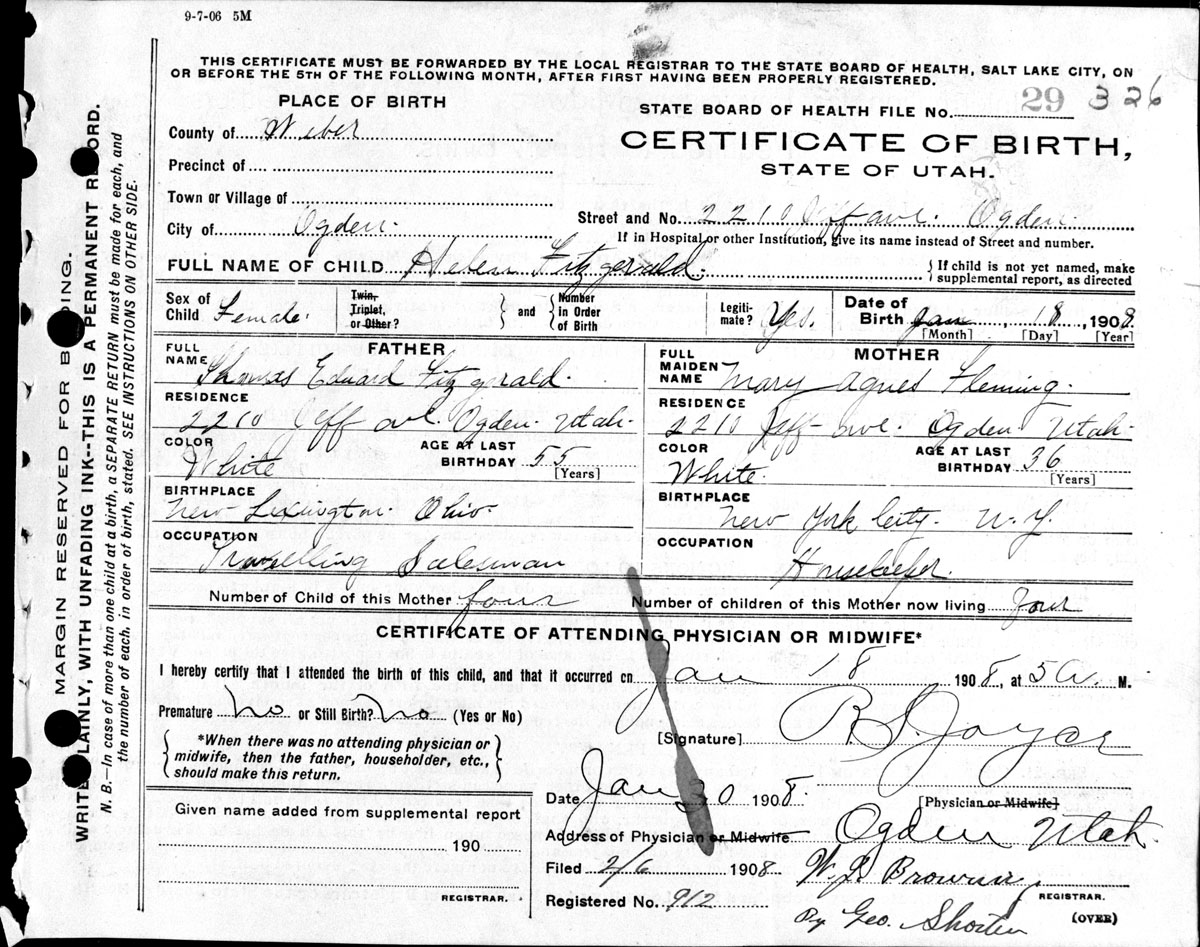 9-7-06 5M
THIS CERTIFICATE MUST BE FORWARDED BY THE LOCAL REGISTRAR TO THE STATE BOARD OF HEALTH, SALT LAKE CITY, ON
OR BEFORE THE 5TH OF THE FOLLOWING MONTH, AFTER FIRST HAVING BEEN PROPERLY REGISTERED.
PLACE OF BIRTH
STATE BOARD OF HEALTH FILE No. 29 326
County of Weber
CERTIFICATE OF BIRTH,
STATE OF UTAH.
Precinct of
Town or Village of
Street and No. 2210 Jeff ave. Ogden.
City of Ogden.
If in Hospital or other Institution, give its name instead of Street and number.
FULL NAME OF CHILD Helen Fitzgerald. { If child is not yet named, make
supplemental report, as directed
Sex of Child Female. Twin, Triplet, or Other? } and { Number in Order of Birth Legiti-mate? Yes. Date of Birth Jan, 18, 1908.
[Month] [Day] [Year]
FATHER
FULL NAME Thomas Edward Fitzgerald.
RESIDENCE
2210 Jeff ave. Ogden. Utah.
COLOR White AGE AT LAST BIRTHDAY 55 [Years]
BIRTHPLACE
New Lexington. Ohio.
OCCUPATION
Travelling Salesman
MOTHER
FULL MAIDEN NAME Mary Agnes Fleming.
RESIDENCE
2210 Jeff ave. Ogden. Utah.
COLOR White. AGE AT LAST BIRTHDAY 36 [Years]
BIRTHPLACE
New York City. N.Y.
OCCUPATION
Housekeeper.
Number of Child of this Mother four Number of children of this Mother now living Four
CERTIFICATE OF ATTENDING PHYSICIAN OR MIDWIFE*
I hereby certify that I attended the birth of this child, and that it occurred on Jan 18 1908, at 5 A. M.
Premature No or Still Birth? No (Yes or No)
[Signature] Joyce
{ *When there was no attending physician or
midwife, then the father, householder, etc.,
should make this return. }
Date Jan 30 1908.
[Physician or Midwife]
Given name added from supplemental report
190
REGISTRAR.
Address of Physician or Midwife Ogden Utah.
Filed 2/6 1908 W. J. REGISTRAR.
Registered No. 912 By Geo. Shorten
(OVER)
MARGIN RESERVED FOR B DING.
WRITE LAINLY, WITH UNFADING INK--THIS IS A PERMANENT R ORD.
N. B.—In case of more than one child at a birth, a SEPARATE RETURN must be made for each, and
the number of each, in order of birth, stated. SEE INSTRUCTIONS ON OTHER SIDE.